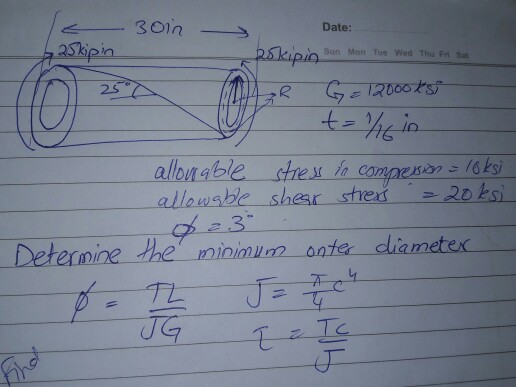 30in
Date:
25kipin
25kipin
Sun Mon Tue Wed Thu Fri Sat
25°
R
G = 12000ksi
t = 1/16 in
allowable stress in compression = 16ksi
allowable shear stress = 20ksi
φ = 3°
Determine the minimum onter diameter
φ = TL/JG
J = π/4 c⁴
τ = Tc/J
Find